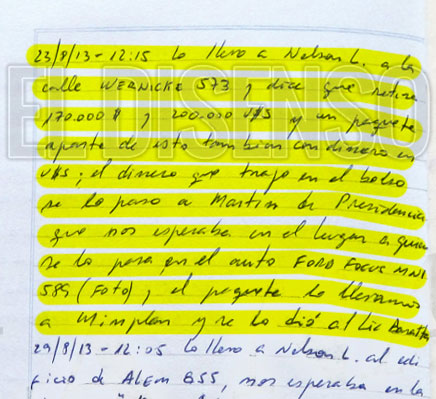 23/8/13-12:15 Lo llevo a Nelson L. a la
calle WERNICKE 573 y dice que retira
170.000 $ y 200.000 U$S y un paquete
aparte de esto tambien con dinero en
U$S; el dinero que trajo en el bolso
se lo paso a Martin de Presidencia
que nos esperaba en el lugar a quien
se lo pasa en el auto FORD FOCUS MNI
589 (FOTO), el paquete lo llevamos
a Minplan y se lo dió al Lic Baratta
29/8/13-12:05 Lo llevo a Nelson L. al edi
ficio de ALEM 855, nos esperaba en la
EL DISENSO